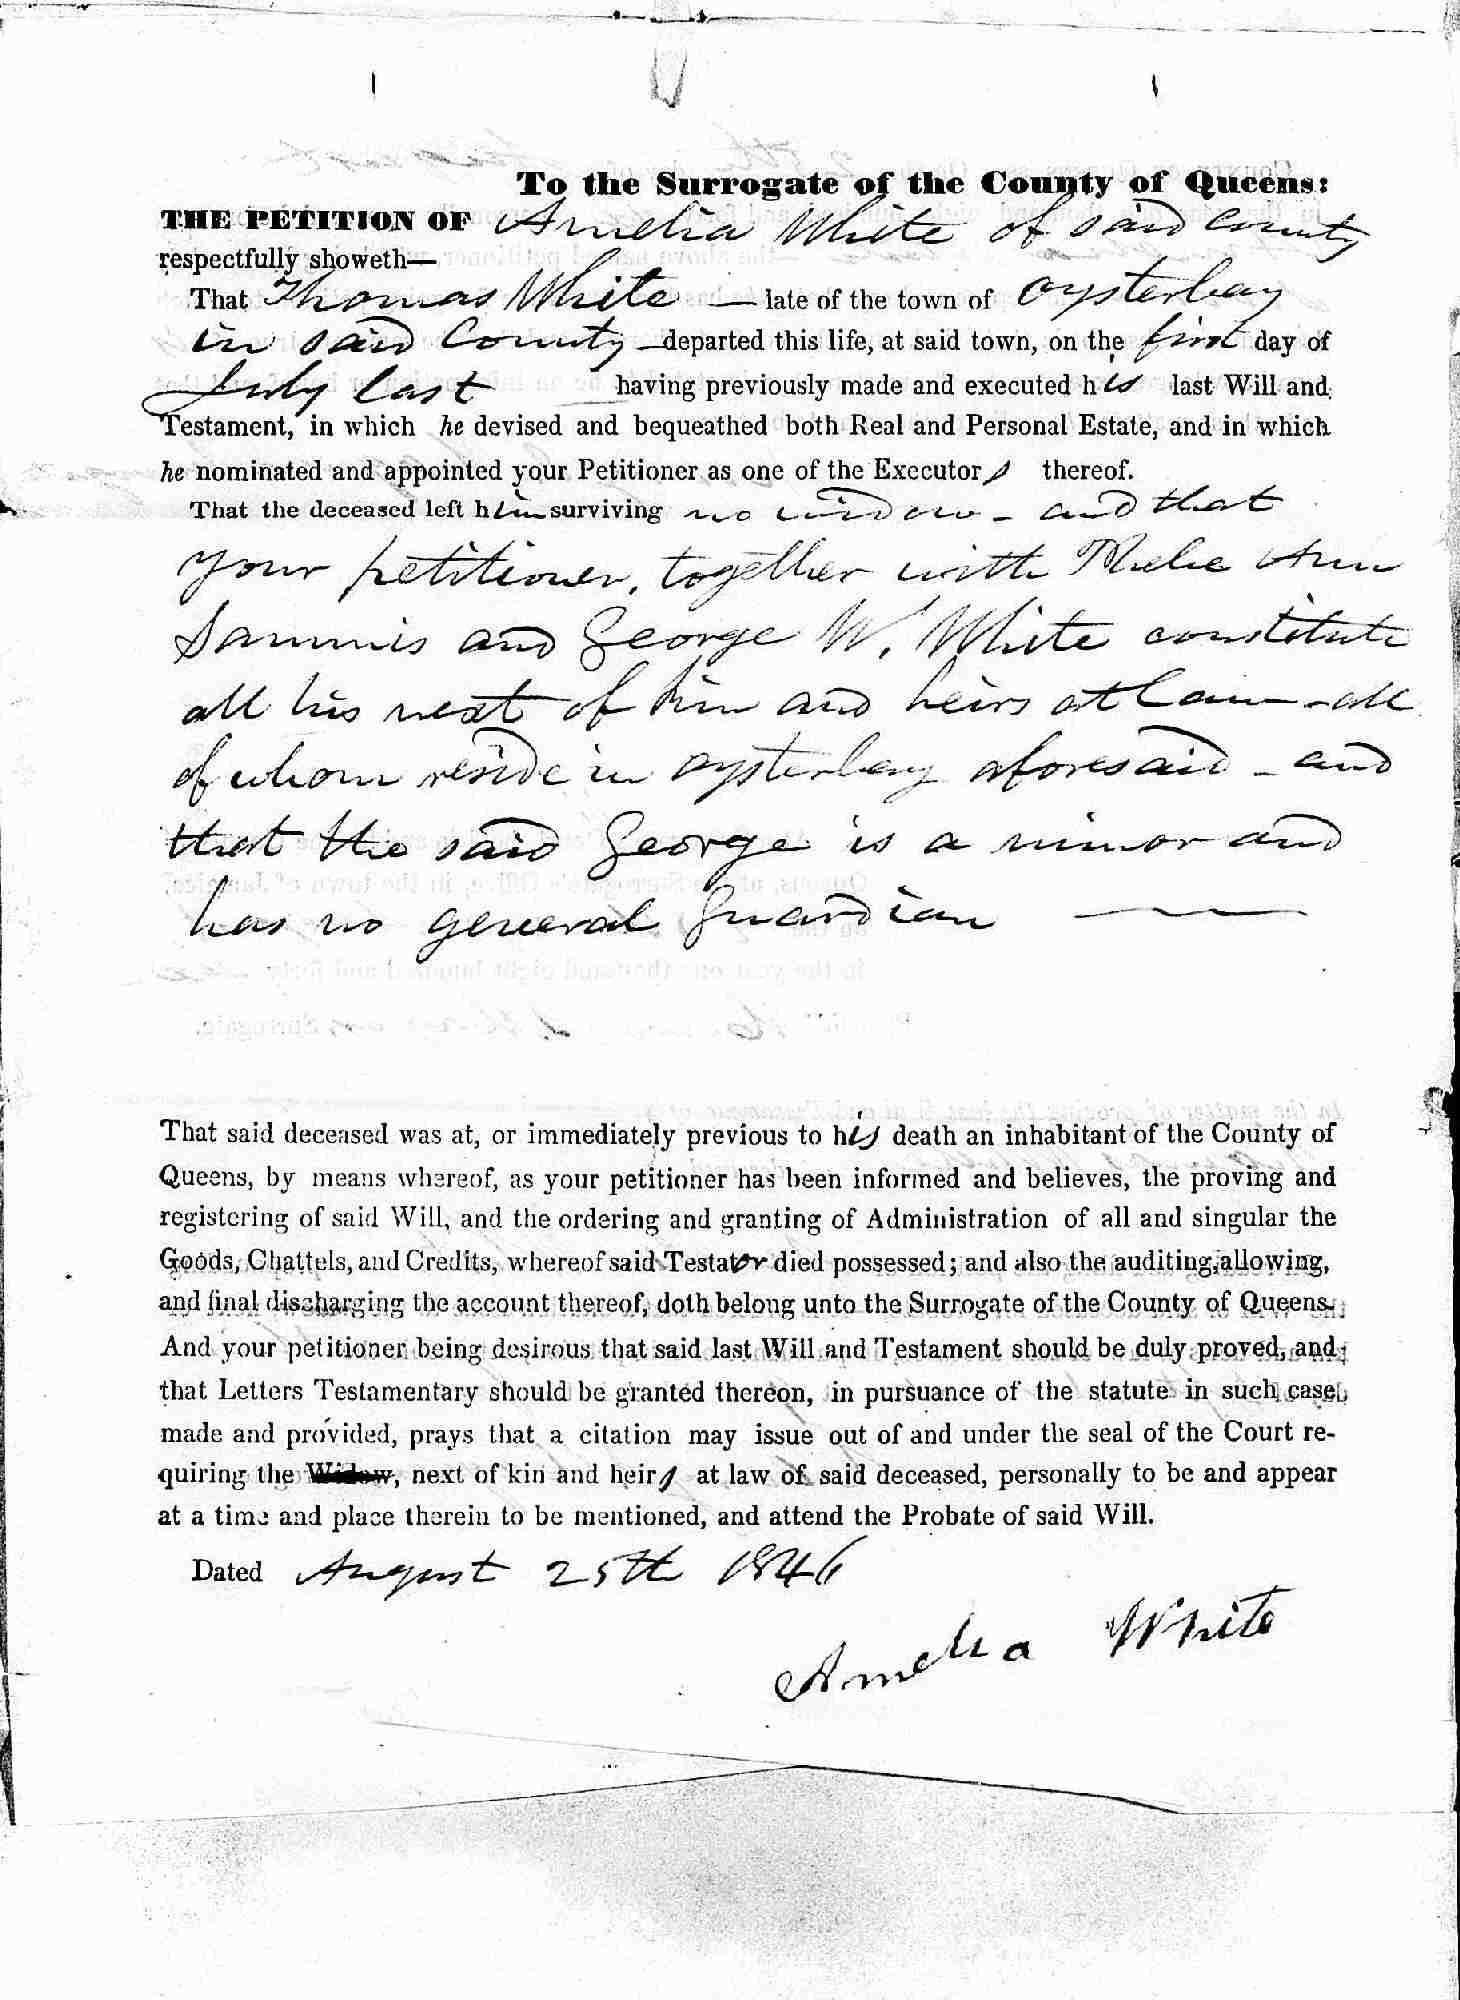 To the Surrogate of the County of Queens:
THE PETITION OF Amelia White of said County
respectfully showeth—
That Thomas White — late of the town of Oysterbay
in said County — departed this life, at said town, on the first day of
July last having previously made and executed his last Will and
Testament, in which he devised and bequeathed both Real and Personal Estate, and in which
he nominated and appointed your Petitioner as one of the Executors thereof.
That the deceased left him surviving no widow - and that
your petitioner, together with Phebe Ann
Sammis and George W. White constitute
all his next of kin and heirs at Law - all
of whom reside in Oysterbay aforesaid - and
that the said George is a minor and
has no general Guardian —
That said deceased was at, or immediately previous to his death an inhabitant of the County of
Queens, by means whereof, as your petitioner has been informed and believes, the proving and
registering of said Will, and the ordering and granting of Administration of all and singular the
Goods, Chattels, and Credits, whereof said Testator died possessed; and also the auditing, allowing,
and final discharging the account thereof, doth belong unto the Surrogate of the County of Queens.
And your petitioner being desirous that said last Will and Testament should be duly proved, and
that Letters Testamentary should be granted thereon, in pursuance of the statute in such case
made and provided, prays that a citation may issue out of and under the seal of the Court re-
quiring the Widow, next of kin and heirs at law of said deceased, personally to be and appear
at a time and place therein to be mentioned, and attend the Probate of said Will.
Dated August 25th 1846
Amelia White